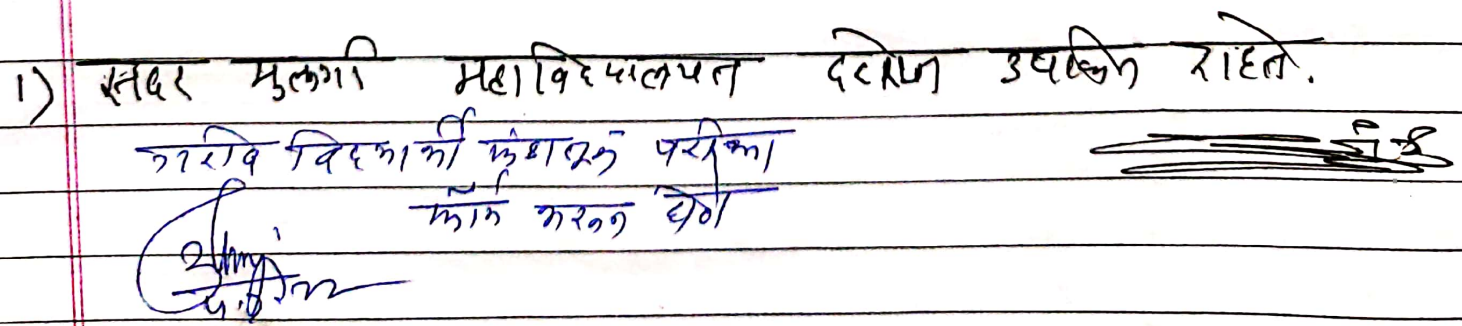 1) सदर मुलगी महाविद्यालयात दररोज उपस्थित राहते.
गरीब विद्यार्थी फंडातून परीक्षा
फॉर्म भरून घेणे